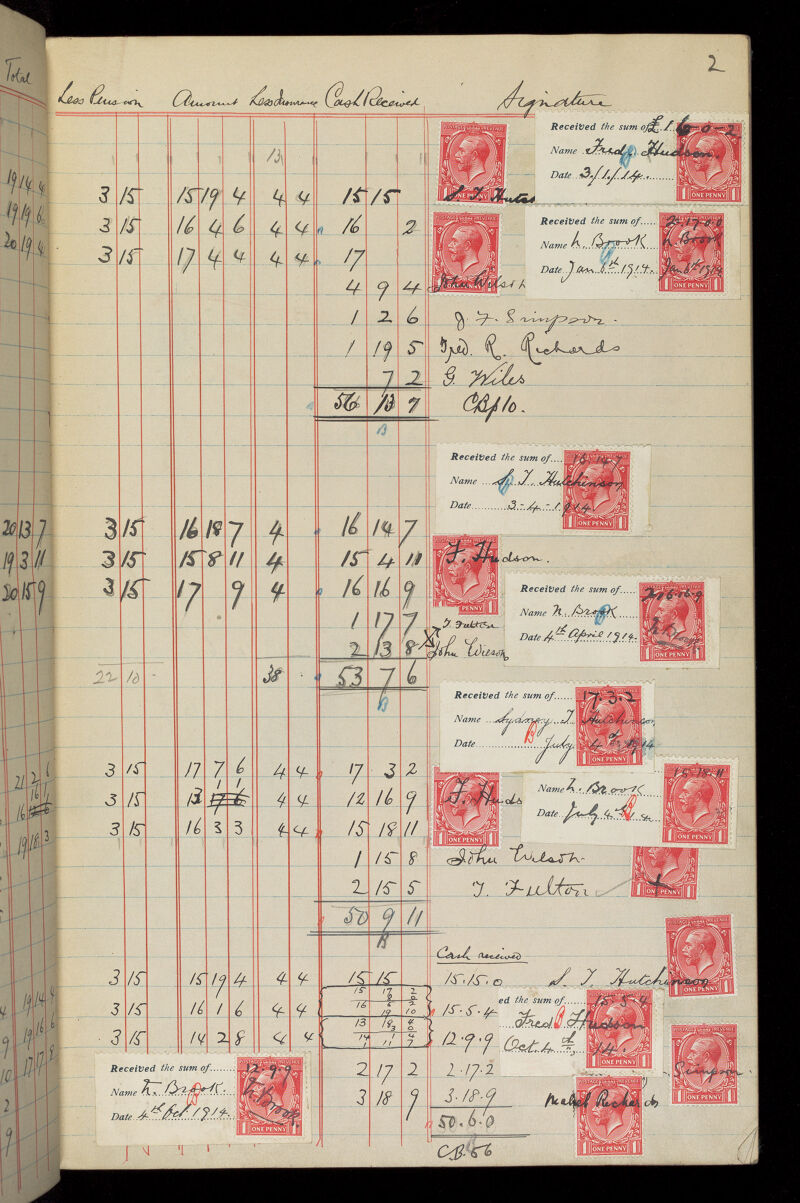 2
Total
Less Pension Amount Less Insurance Cash Received Signature
13
Received the sum of £16-0-2
Name Fred. Hudson.
Date 3/1/14.
19 14 4
3 15 15 19 4 4 4 15 15
19 19 6
3 15 16 4 6 4 4 16 2
Received the sum of 2-17-0-0
Name h. Brook h. Brook
Date Jan 6th 1914. Jan 6th 1914
20 19 4
3 15 17 4 4 4 4 17
4 9 4 John Wilson
1 2 6 J. F. Simpson.
1 19 5 Fred. R. Richards
7 2 G. Wiles
56 13 7 CBp10.
B
Received the sum of 16.14.7
Name S. T. Hutchinson
Date 3-4-1914
20 13 7
3 15 16 18 7 4 16 14 7
19 3 11
3 15 15 8 11 4 15 4 11 F. Hudson.
20 15 9
3 15 17 9 4 16 16 9
Received the sum of
Name h. Brook
Date 4th April 1914.
1 17 7 T. Fulton
2 13 8 X John Wilson
22 10 - 38 - 53 7 6
B
Received the sum of 17.3.2
Name Sydney T. Hutchinson
Date July 4th 1914
21 2 6
3 15 17 7 6 4 4 17 3 2
16 1
3 15 13 1 1 4 4 12 16 9 F. Huds
Name h. Brook 15.18.11
Date July 4th 14
19 18 3
3 15 16 3 3 4 4 15 18 11
1 15 8 John Wilson
2 15 5 T. Fulton
50 9 11
B
Cash received
19 14 4
3 15 15 19 4 4 4 15 15 15.15.0 S. T. Hutchinson
15 17 2
16 6 2
19 10
19 16 6
3 15 16 1 6 4 4 15.5.4
ed the sum of 15.5.4
Fred Hudson
Oct 4th, 14.
13 18 4
3 0
14 1 4
11 7
17 17 8
3 15 14 2 8 4 4 12.9.9
2 17 2 2.17.2 Simpson.
3 18 9 3.18.9 Mabel Richards
50.6.0
C.B. 56
Received the sum of 12.9.9
Name h. Brook. h. Brook
Date 4th Oct 1914.
POSTAGE REVENUE
1 ONE PENNY 1